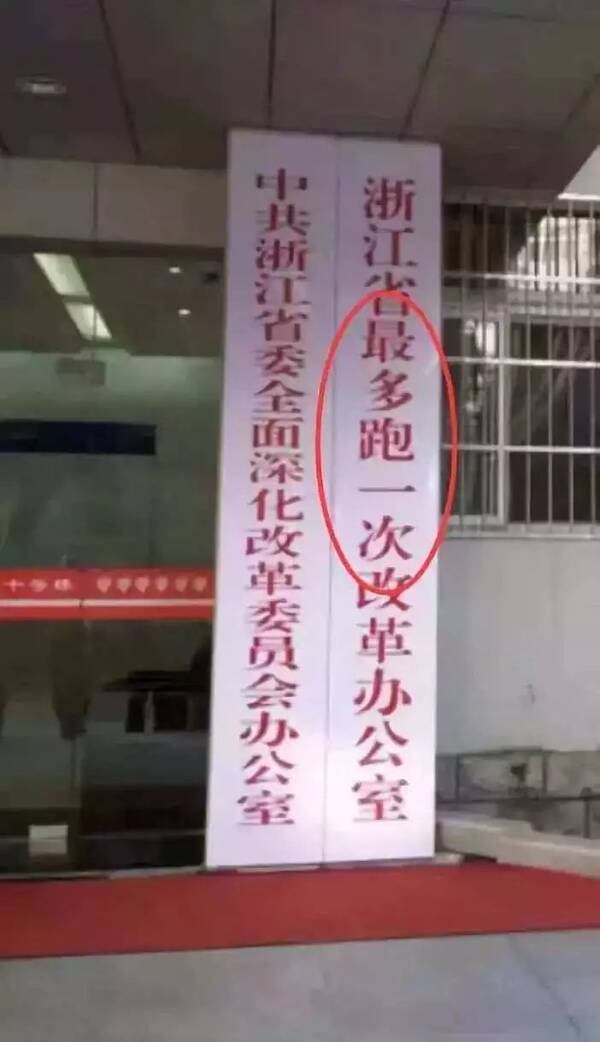 浙江省最多跑一次改革办公室
中共浙江省委全面深化改革委员会办公室